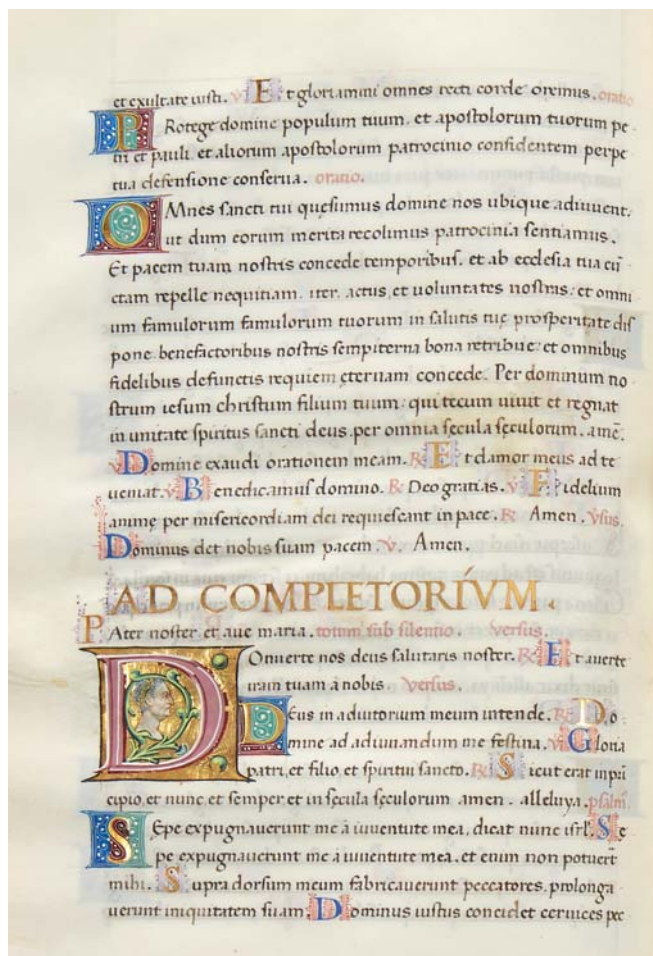 et exultate iusti. V Et gloriamini omnes recti corde oremus. oratio
PRotege domine populum tuum. et apostolorum tuorum pe
tri et pauli, et aliorum apostolorum patrocinio confidentem perpe
tua defensione conserua. oratio.
OMnes sancti tui quęsumus domine nos ubique adiuuent.
ut dum eorum merita recolimus patrocinia sentiamus.
Et pacem tuam nostris concede temporibus. et ab ecclesia tua cū
ctam repelle nequitiam. iter. actus, et uoluntates nostras: et omni
um famulorum famulorum tuorum in salutis tuę prosperitate dis
pone. benefactoribus nostris sempiterna bona retribue: et omnibus
fidelibus defunctis requiem ęternam concede. Per dominum no
strum iesum christum filium tuum: qui tecum uiuit et regnat
in unitate spiritus sancti deus. per omnia sęcula sęculorum. amē.
V Domine exaudi orationem meam. R Et clamor meus ad te
ueniat. V Benedicamus domino. R Deo gratias. V Fidelium
animę per misericordiam dei requiescant in pace. R Amen. Vsus.
Dominus det nobis suam pacem. V. Amen.
AD COMPLETORÍVM.
PAter noster et aue maria. totum sub silentio. Versus.
COnuerte nos deus salutaris noster. R Et auerte
iram tuam à nobis Versus.
DEus in adiutorium meum intende. R Do
mine ad adiuuandum me festina. V Gloria
patri, et filio, et spiritui sancto. R Sicut erat in pri
cipio, et nunc, et semper, et in sęcula sęculorum amen. alleluya. psalm
SEpe expugnauerunt me à iuuentute mea, dicat nunc isrl. Se
pe expugnauerunt me à iuuentute mea. et enim non potuerūt
mihi. Supra dorsum meum fabricauerunt peccatores. prolonga
uerunt iniquitatem suam. Dominus iustus concidet ceruices pec